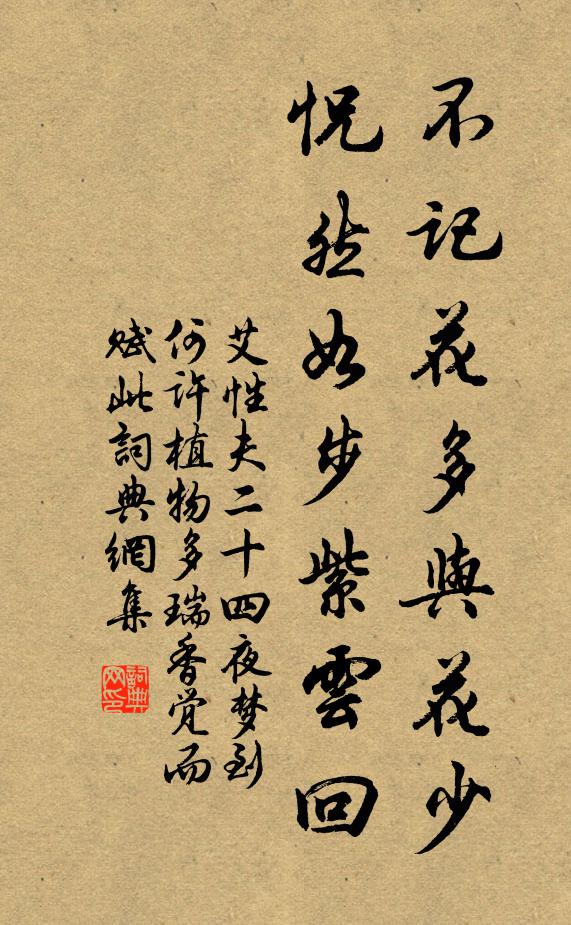 不记花多與花少
怳然如步紫雲回
艾性夫二十四夜梦到
何许植物多瑞香觉而
赋此詞典網集
詞典网印